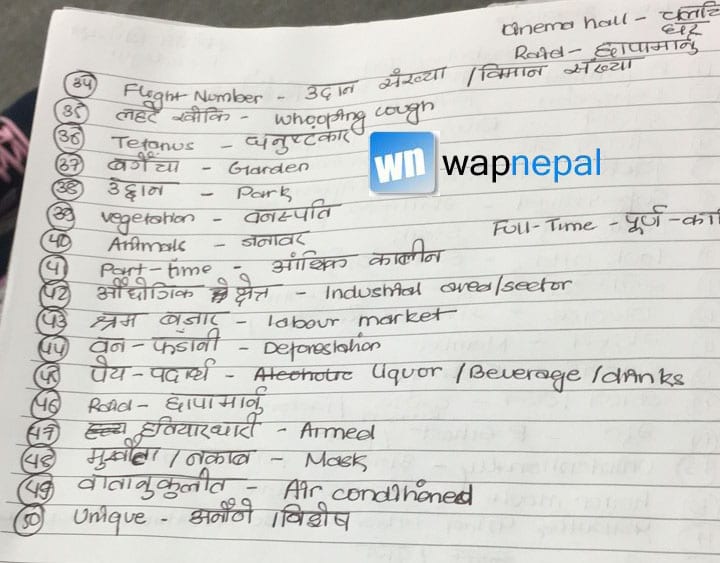 Cinema hall - चलचि
घर
Raid - छापामार्नु
34 Flight Number - उड्डान संख्या / विमान संख्या
35 लहरे खोकि - Whooping cough
36 Tetanus - धनुष्टंकार
37 बगैंचा - Garden
wn wapnepal
38 उद्दान - Park
39 vegetation - वनस्पति
40 Animals - जनावर
Full-Time - पूर्ण-का
41 Part-time - आंशिक कालीन
42 औद्योगिक क्षेत्र - Industrial area/sector
43 श्रम बजार - labour market
44 वन-फडानी - Deforestation
45 पेय-पदार्थ - Alcoholic liquor / Beverage / drinks
46 Raid - छापामार्नु
47 हतियारधारी - Armed
48 / नकाब - Mask
49 वातानुकुलीत - Air conditioned
50 Unique - अनौंठो / विशेष